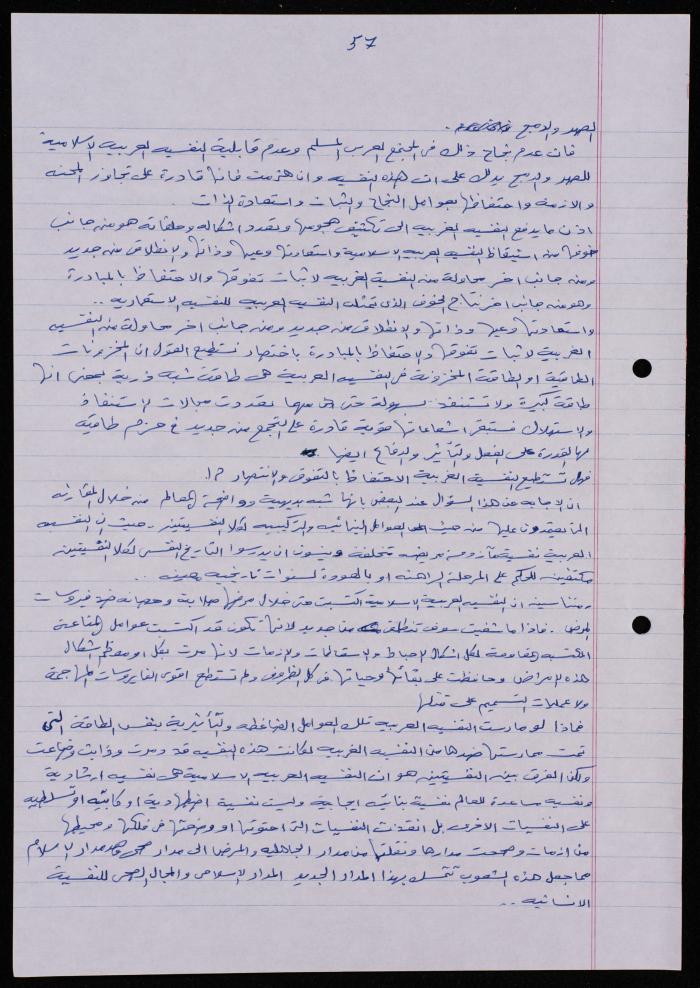 57
الصهر والدمج
فان عدم نجاح ذلك في المجتمع العربي المسلم وعدم قابلية النفسيه العربيه الاسلامية
للصهر والدمج يدلك على ان هذه النفسيه وان هزمت فانها قادرة على تجاوز المحنه
والازمه واحتفاظها بعوامل النجاح والثبات واستعادة الذات .
اذن ما يدفع النفسيه الغربيه الى تكثيف هجومها وتعدد اشكاله وحلقاته هو من جانب
خوفها من استيقاظ النفسيه العربيه الاسلامية واستعادتها وعيها وذاتها والانطلاق من جديد
ومن جانب اخر محاولة من النفسية الغربيه لاثبات تفوقها والاحتفاظ بالمبادرة
وهو من جانب اخر نتاج الخوف الذي تمثله النفسيه العربيه للنفسيه الاستعماريه ..
واستعادتها وعيها وذاتها والانطلاق من جديد ومن جانب اخر محاولة من النفسيه
الغربية لاثبات تفوقها والاحتفاظ بالمبادرة باختصار نستطيع القول ان المخزونات
الطاقية او الطاقة المخزونة في النفسيه العربية هي طاقة شبه ذرية بمعنى انها
طاقة كبيرة ولا تستنفذ بسهولة حتى مهما تعددت مجالات الاستنفاذ
والاستهلاك فستبقى اشعاعاتها قوية قادرة على التجمع من جديد في حزم طاقية
لها القدرة على الفعل والتأثير والدفاع ايضا .
فهل تستطيع النفسية الغربية الاحتفاظ بالتفوق والانتصار ؟!
ان الاجابه عن هذا السؤال عند البعض بانها شبه بديهية وواضحة للعالم من خلال المقارنه
التي يعتمدون عليها من حيث العوامل البنائيه والتركيبيه لكلا النفسيتين . حيث ان النفسيه
العربية نفسية مريضه متخلفه وينسون ان يدرسوا التاريخ النفسي لكلا النفسيتين
مكتفين للحكم على المرحلة الراهنه او بالعودة لسنوات تاريخيه معينه ..
متناسين ان النفسيه العربيه الاسلامية اكتسبت من خلال مرضها صلابة وحصانه ضد فيروسات
المرض . فاذا ما شفيت سوف تنطلق من جديد لانها تكون قد اكتسبت عوامل المناعة
المكتسبه للمقاومة لكل اشكال الاحباط والازمات لانها مرت بكل او معظم اشكال
هذه الامراض وحافظت على بقائها وحياتها في كل الظروف ولم تستطع اقوى الفايروسات المهاجمة
ولا عمليات التسميم على قتلها
فماذا لو مارست النفسيه العربيه تلك العوامل الضاغطه والتأثيرية بنفس الطاقة التي
تمت ممارستها ضدها من النفسيه الغربيه لكانت هذه النفسيه قد دمرت وذابت وضاعت
ولكن الفرق بين النفسيتين هو ان النفسيه العربيه الاسلامية هي نفسيه ارشادية
ونفسيه مساعدة للعالم نفسية بنائيه ايجابية وليست نفسية اضطهادية او تسلطيه
على النفسيات الاخرى بل انقذت النفسيات التي احتوتها او وضعتها في فلكها ومحيطها
من ازمات وصححت مدارها ونقلتها من مدار الجاهليه والمرض الى مدار صحي هو مدار الاسلام
مما جعل هذه الشعوب تتمسك بهذا المدار الجديد المدار الاسلامي والمجال الصحي للنفسية
الانسانيه ..